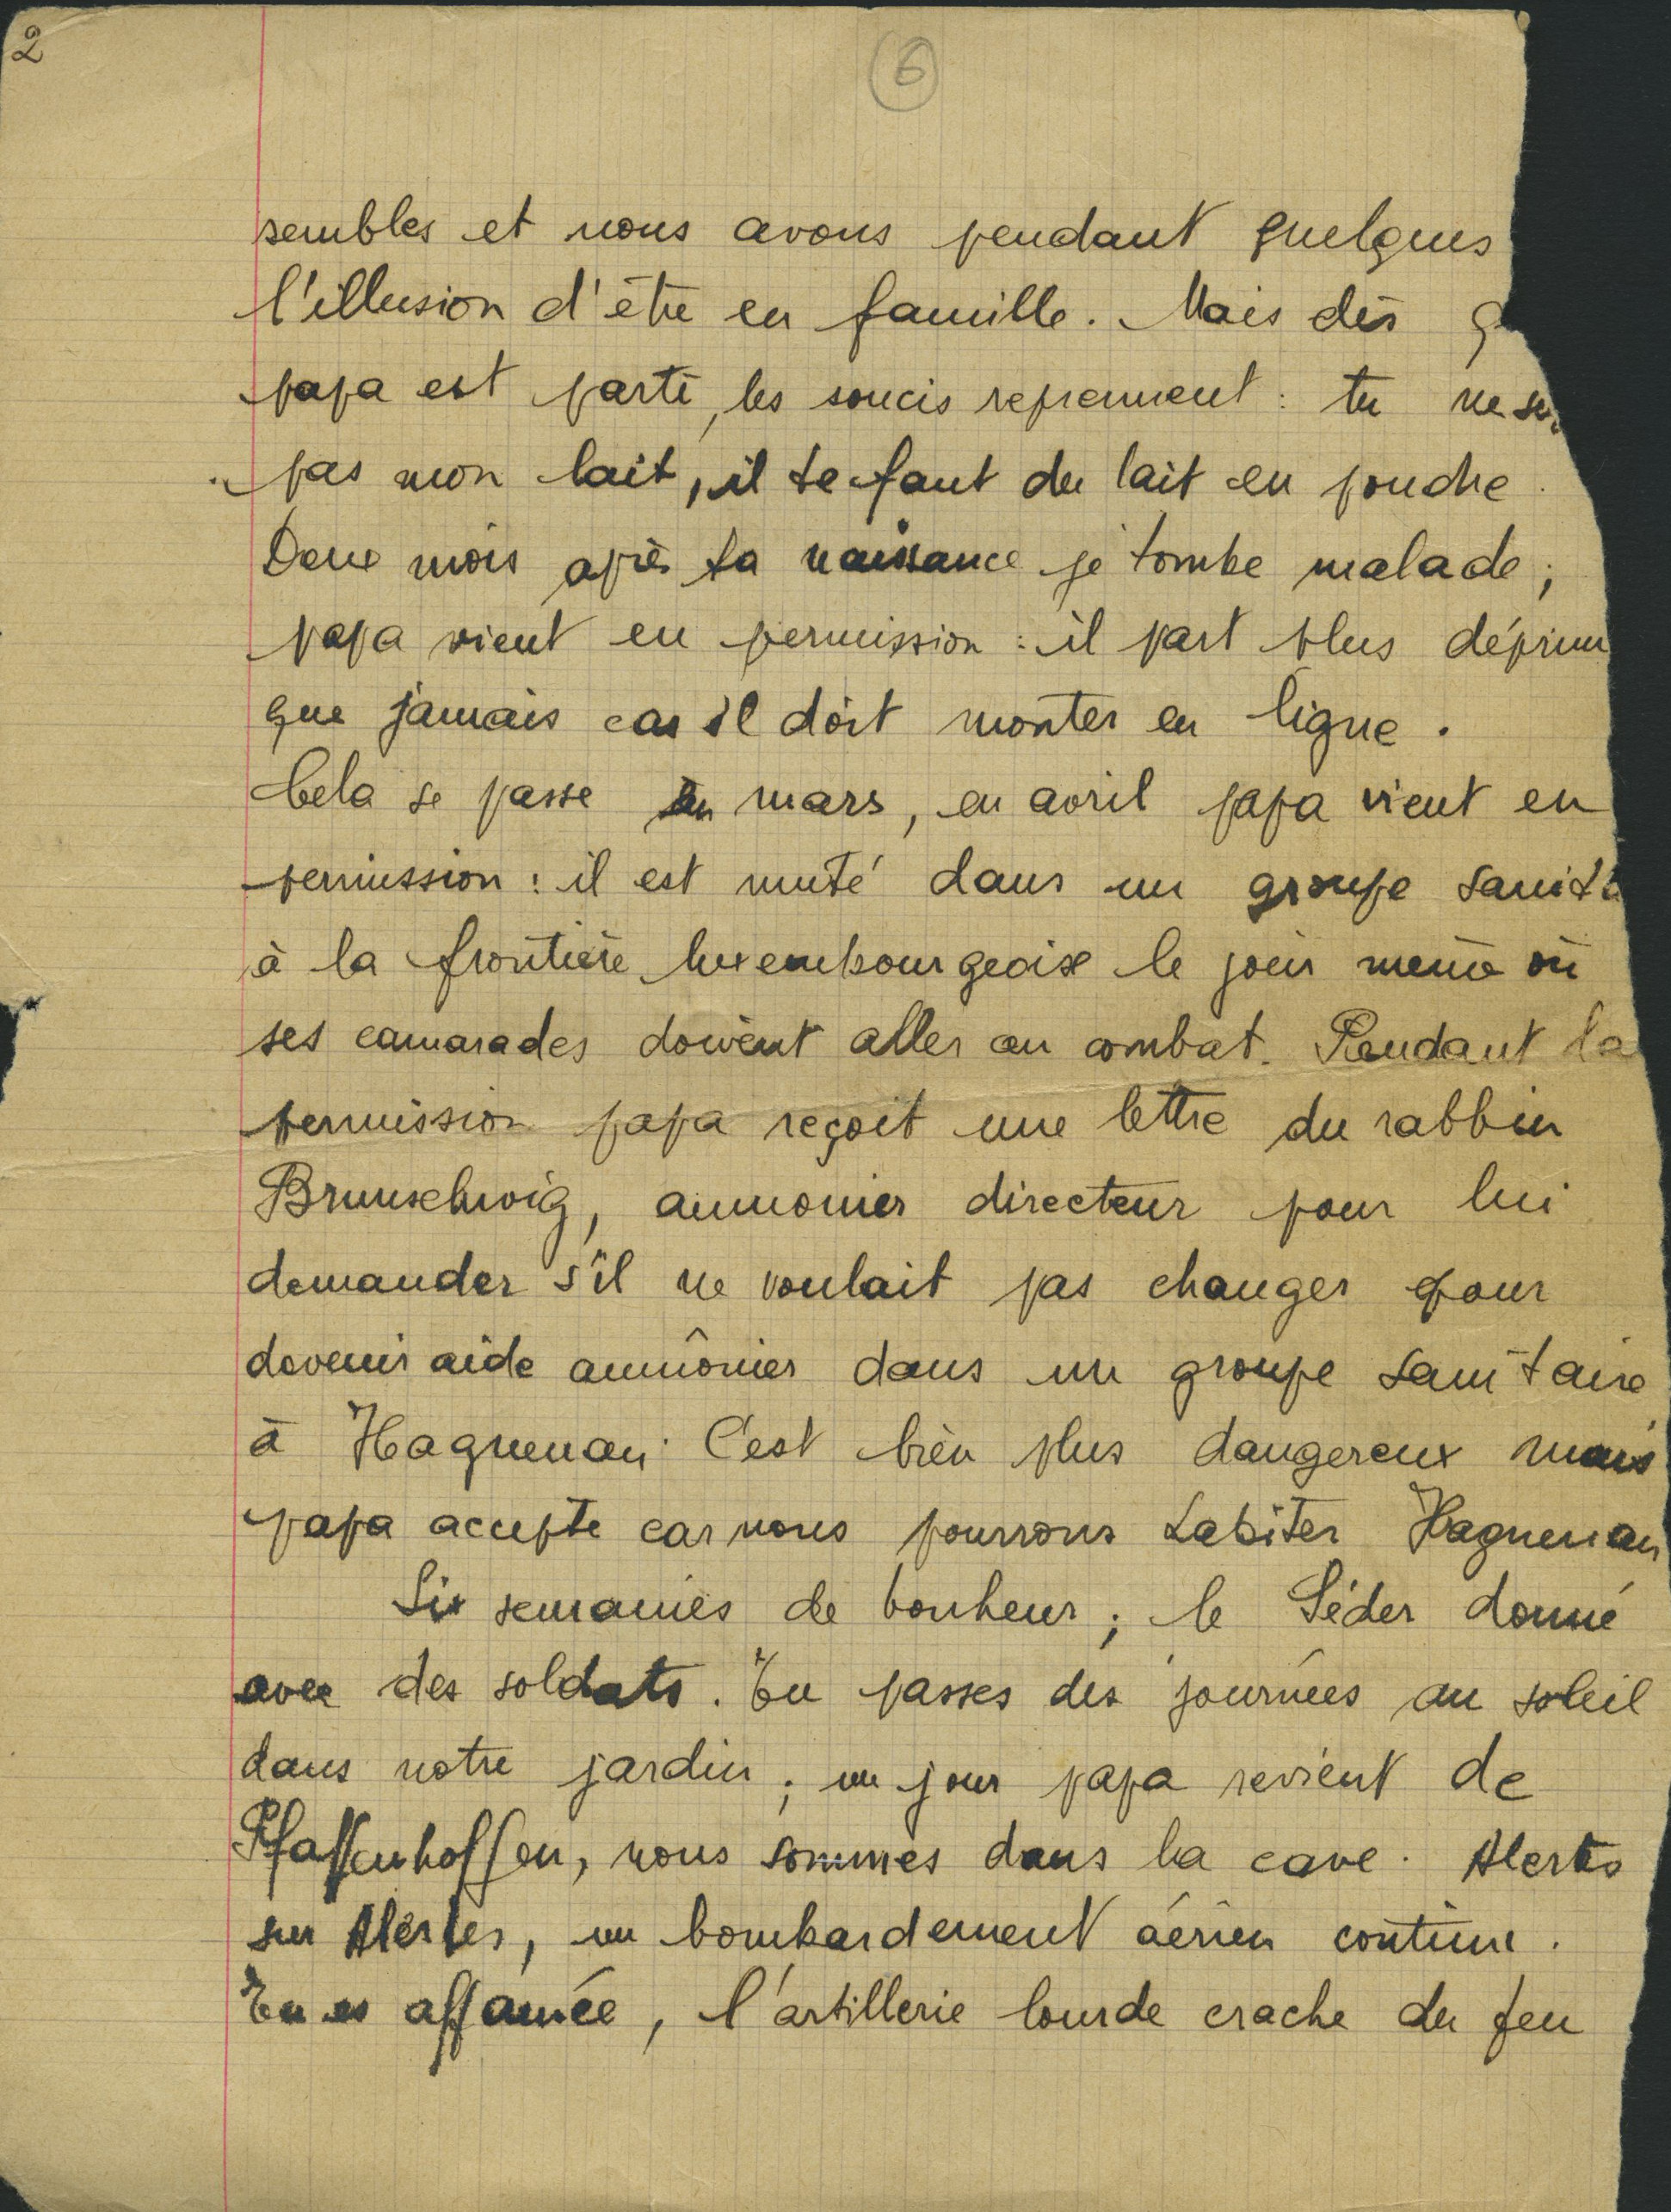 2
6
sembles et nous avons pendant quelques
l'illusion d'être en famille. Mais dès
papa est parti, les soucis reprennent : tu ne
pas mon lait, il te faut du lait en poudre.
Deux mois après ta naissance je tombe malade ;
papa vient en permission : il part plus déprim
que jamais car il doit monter en ligne.
Cela se passe en mars, en avril papa vient en
permission : il est muté dans un groupe sanit
à la frontière luxembourgeoise le jour même où
ses camarades doivent aller au combat. Pendant la
permission papa reçoit une lettre du rabbin
Brunschwig, aumonier directeur pour lui
demander s'il ne voulait pas changer pour
devenir aide aumônier dans un groupe sanitaire
à Haguenau. C'est bien plus dangereux mais
papa accepte car nous pourrons habiter Haguenau
Six semaines de bonheur ; le Séder donné
avec des soldats. Tu passes des journées au soleil
dans notre jardin ; un jour papa revient de
Pfaffenhoffen, nous sommes dans la cave. Alertes
sur Alertes, un bombardement aérien continu.
Tu es affamée, l'artillerie lourde crache du feu